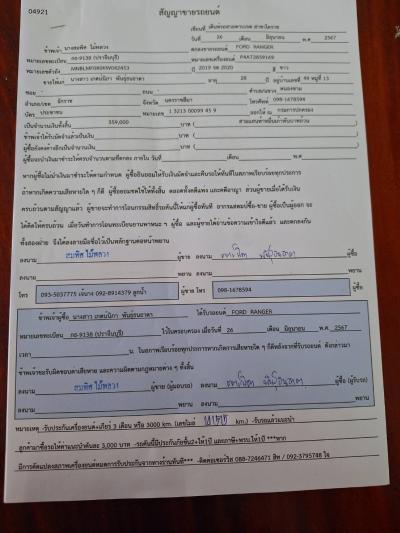 04921
สัญญาขายรถยนต์
เขียนที่ เต็นท์รถสวยตาเกด สาขาโคราช
วันที่ 26 เดือน มิถุนายน พ.ศ. 2567
ข้าพเจ้า นางสมพิศ ไม้หลวง ตกลงขายรถยนต์ FORD RANGER
หมายเลขทะเบียน กธ-9138 (ปราจีนบุรี) หมายเลขเครื่องยนต์ P4AT2859169
หมายเลขตัวถัง ปี 2019 จด 2020 สี ขาว
ขายให้แก่ นางสาว เกศนัฏิกา พันธุ์ธนาดา อายุ 28 ปี อยู่บ้านเลขที่ 49 หมู่ที่ 13
ซอย - ถนน - ตำบล/แขวง หนองขาม
อำเภอ/เขต จักราช จังหวัด นครราชสีมา โทรศัพท์ 098-1678594
บัตร ประชาชน หมายเลข 1 3213 00099 45 9 ออกให้ ณ กรมการปกครอง
เป็นจำนวนเงินทั้งสิ้น 359,000 บาท ( สามแสนห้าหมื่นเก้าพันบาทถ้วน )
ข้าพเจ้าได้รับมัดจำแล้วเป็นเงิน บาท ( )
ผู้ซื้อยังคงค้างอีกเป็นจำนวนเงิน บาท ( )
ผู้ซื้อจะนำเงินมาชำระให้ครบจำนวนตามที่ตกลง ภายใน วันที่ เดือน พ.ศ
หากผู้ซื้อไม่นำเงินมาชำระให้ตามกำหนด ผู้ซื้อยินยอมให้ริบเงินมัดจำและคืนรถให้ทันทีในสภาพเรียบร้อยทุกประการ
ถ้าหากเกิดความเสียหายใด ๆ ก็ดี ผู้ซื้อยอมชดใช้ให้ทั้งสิ้น ตลอดทั้งคดีแพ่ง และคดีอาญา ส่วนผู้ขายเมื่อได้รับเงิน
ครบถ้วนตามสัญญาแล้ว ผู้ขายจะทำการโอนกรรมสิทธิ์รถคันนี้ให้แก่ผู้ซื้อทันที
ทั้งสองฝ่าย จึงได้ลงลายมือชื่อไว้เป็นหลักฐานต่อหน้าพยาน
ลงนาม สมพิศ ไม้หลวง ผู้ขาย ลงนาม ผู้ซื้อ
ลงนาม พยาน ลงนาม พยาน
โทร 093-5037775 ผู้ขาย โทร 098-1678594 ผู้ซื้อ
ข้าพเจ้าผู้ซื้อ นางสาว เกศนัฏิกา พันธุ์ธนาดา ได้รับรถยนต์ FORD RANGER
หมายเลขทะเบียน กธ-9138 (ปราจีนบุรี) ไว้ในครอบครอง เมื่อวันที่ 26 เดือน มิถุนายน พ.ศ. 2567
เวลา น. ในสภาพเรียบร้อยทุกประการหากเกิดการเสียหายใด ๆ ก็ดีหลังจากที่รับรถยนต์ ดังกล่าวมา
ข้าพเจ้าจะรับผิดชอบตามเสียหาย และความผิดตามกฎหมายต่าง ๆ ทั้งสิ้น
ลงนาม สมพิศ ไม้หลวง ผู้ขาย (ผู้มอบรถ) ลงนาม ผู้ซื้อ (ผู้รับรถ)
ลงนาม พยาน ลงนาม พยาน
หมายเหตุ -รับประกันเครื่องยนต์+เกียร์ 3 เดือน หรือ 3000 km. (เลขไมล์ km.) -รับรถแล้วแนะนำ
ลูกค้ามาซื้อรถให้ค่าแนะนำคันละ 3,000 บาท
มีการดัดแปลงสภาพเครื่องยนต์หมดการรับประกันจากทางร้านทันที*** -ติดต่อเซอร์วิส 088-7246471 / 092-3795748